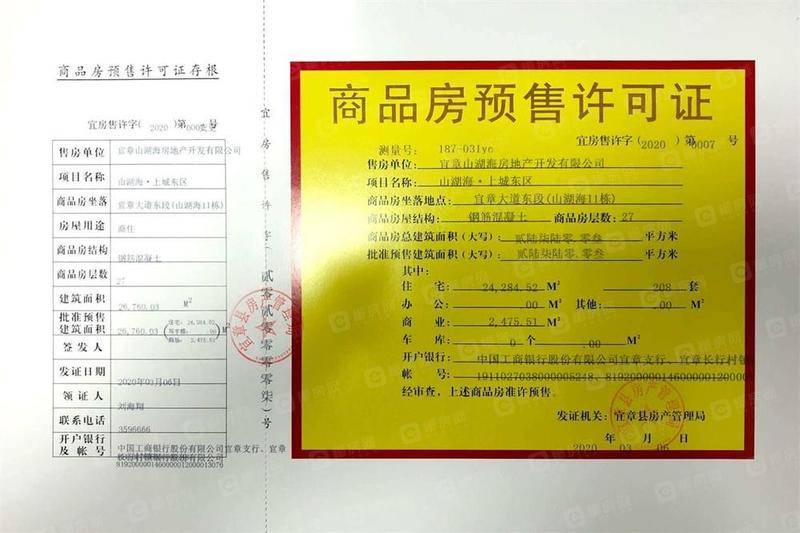 商品房预售许可证存根
宜房售许字( 2020 )第 000变更 号
售房单位 宜章山湖海房地产开发有限公司
项目名称 山湖海·上城东区
商品房坐落 宜章大道东段(山湖海11栋)
房屋用途 商住
商品房结构 钢筋混凝土
商品房层数 27
建筑面积 26,760.03 M²
批准预售建筑面积 26,760.03 ( 住宅: 24,284.52 商业: 2,475.51 ) M²
签发人
发证日期 2020年03月06日
领证人 刘海翔
联系电话 3596666
开户银行及帐号 中国工商银行股份有限公司宜章支行、宜章
长行村镇银行股份有限公司
81920000014600000012000013076
宜房售许字(贰零贰零零零零柒)号
宜章县房产管理局
商品房预售许可证
宜房售许字( 2020 )第 0007 号
测量号: 187-031yc
售房单位: 宜章山湖海房地产开发有限公司
项目名称: 山湖海·上城东区
商品房坐落地点: 宜章大道东段(山湖海11栋)
商品房屋结构: 钢筋混凝土 商品房层数: 27
商品房总建筑面积(大写): 贰陆柒陆零.零叁 平方米
批准预售建筑面积(大写): 贰陆柒陆零.零叁 平方米
其中:
住宅: 24,284.52 M² 208 套
办公: .00 M² 其他: .00 M²
商业: 2,475.51 M²
车库: 0 个 .00 M²
开户银行: 中国工商银行股份有限公司宜章支行、宜章长行村镇
帐号: 1911027038000005248、819200000146000000120000
经审查,上述商品房准许预售。
发证机关: 宜章县房产管理局
2020 年 03 月 06 日